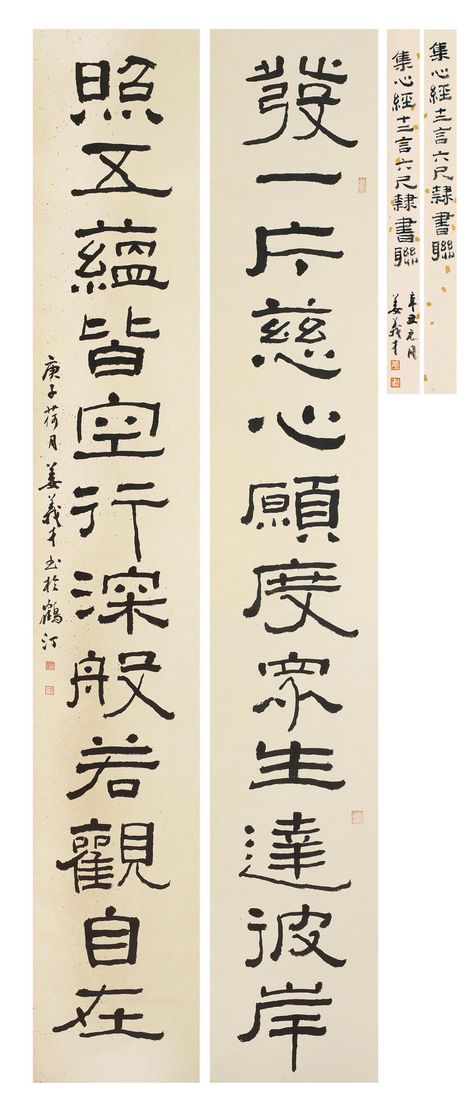 集心經十二言六尺隸書聯
集心經十二言六尺隸書聯
辛丑元月
姜義才
發一片慈心願度眾生達彼岸
照五蘊皆空行深般若觀自在
庚子荷月姜義才书於鶴汀